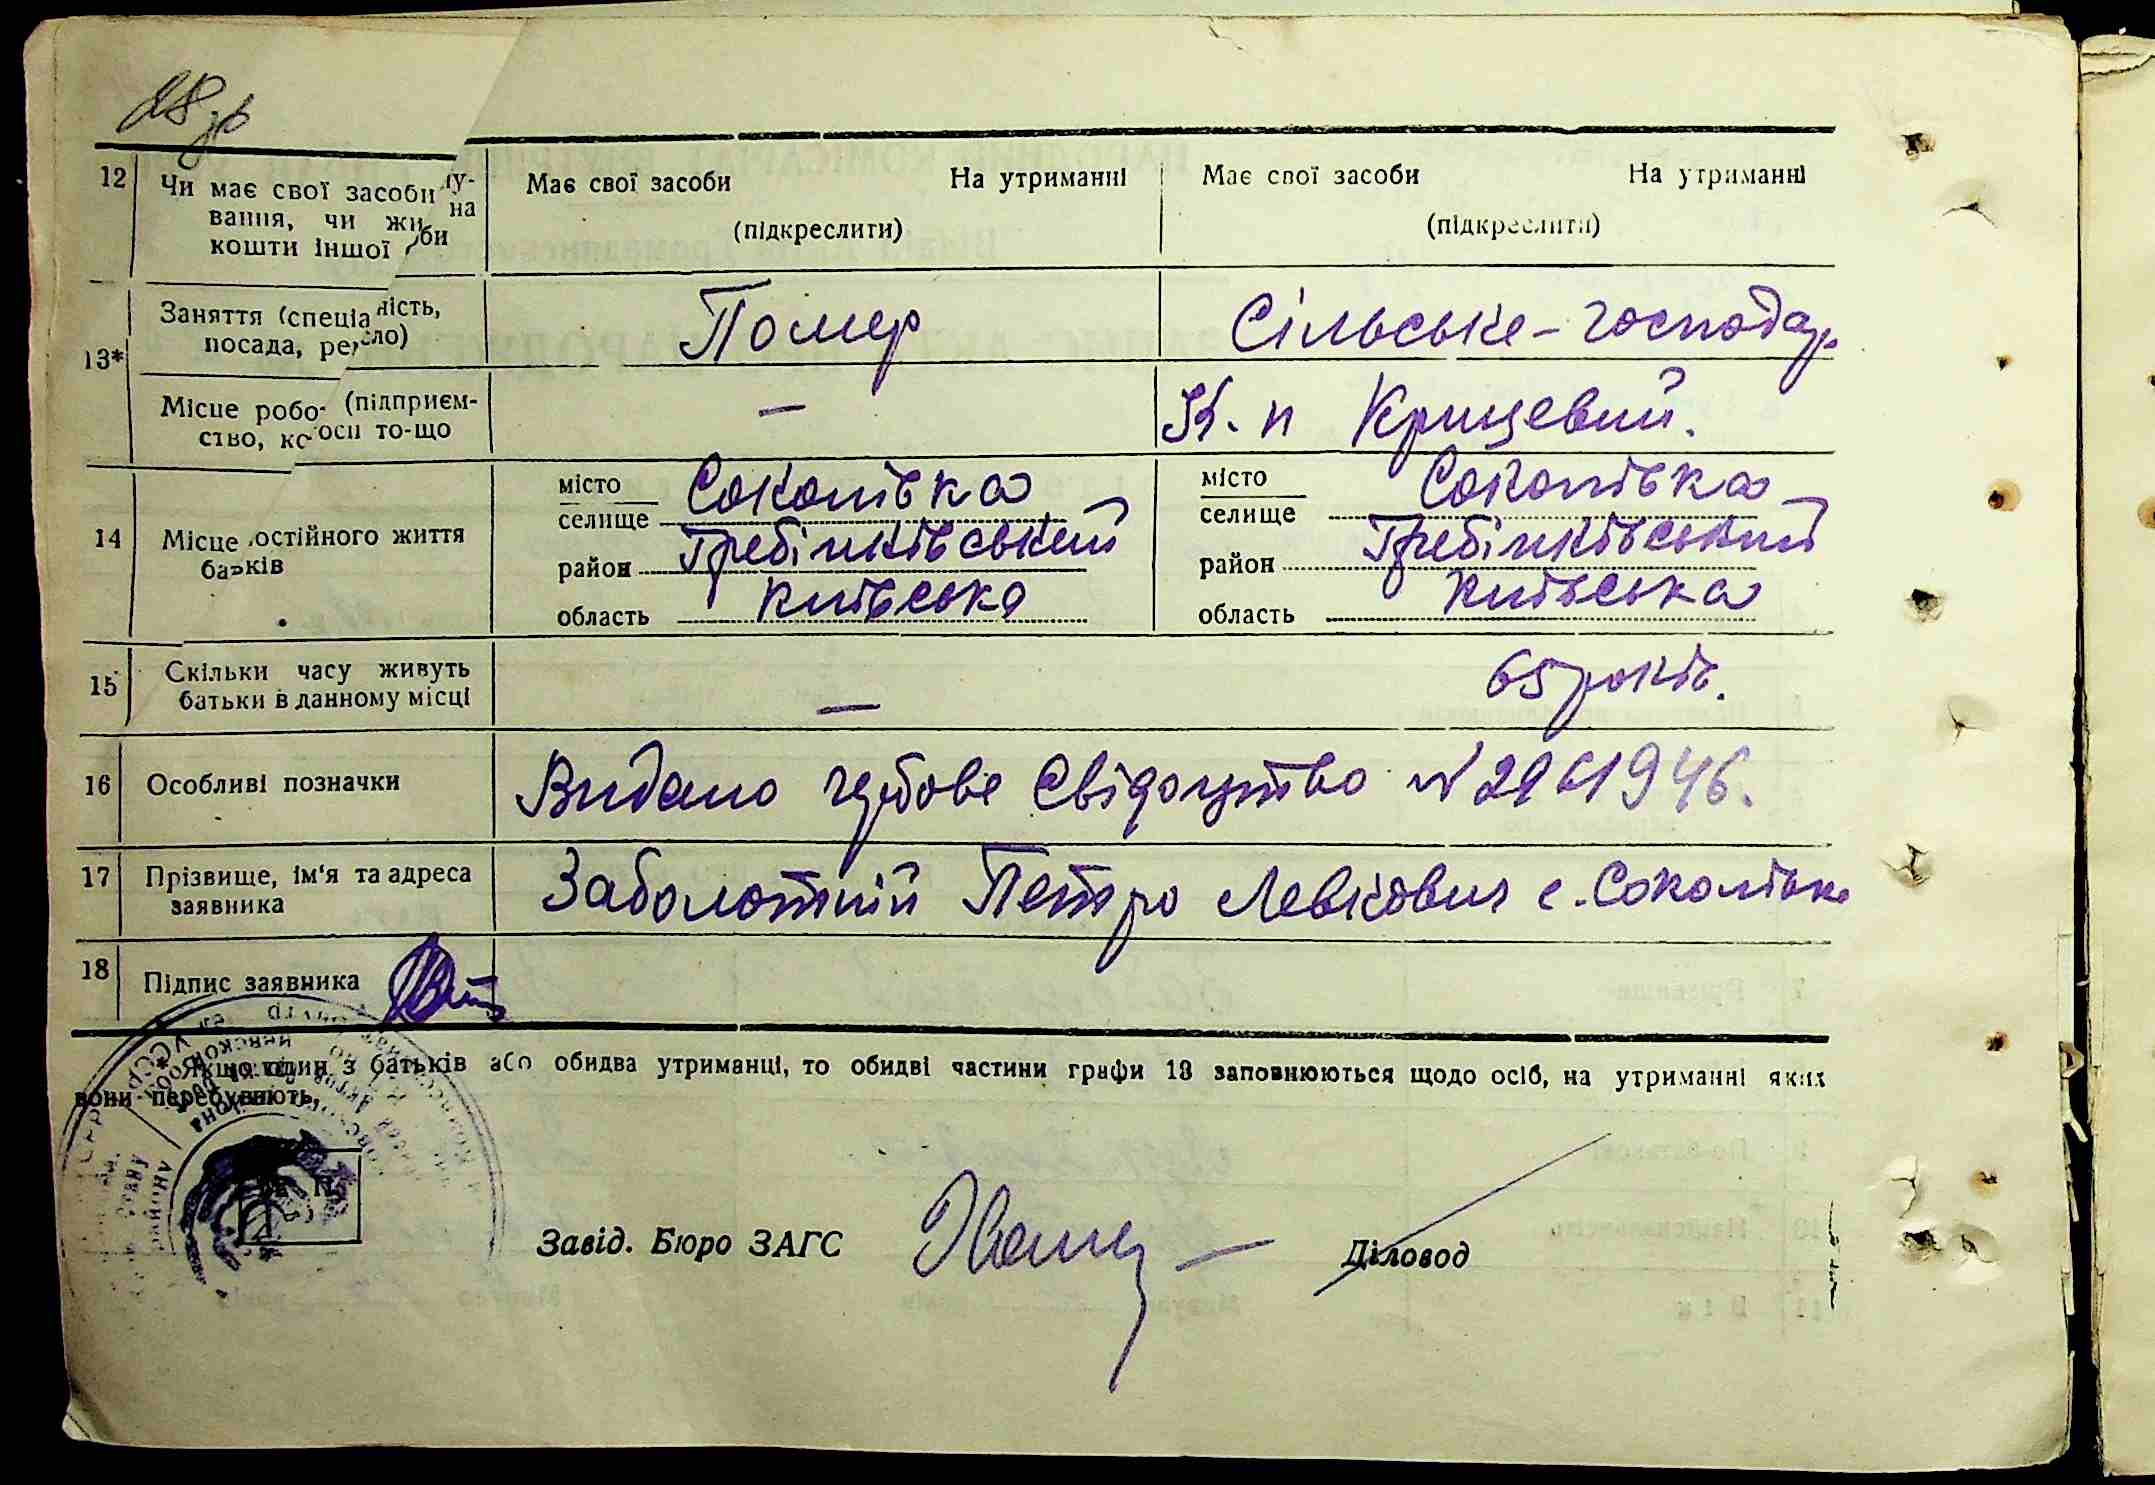 28 зв
12 Чи має свої засоби
вання, чи жи на
кошти іншої оби
Має свої засоби На утриманні
(підкреслити)
Має свої засоби На утриманні
(підкреслити)
13* Заняття (спеціа ність,
посада, ре сло)
Помер
Сільське-господар.
Місце робо- (підприєм-
ство, к осп то-що
—
К. п Крищевий.
14 Місце остійного життя
батьків
місто
селище Соколівка
район Гребінківський
область Київська
місто
селище Соколівка
район Гребінківський
область Київська
15 Скільки часу живуть
батьки в данному місці
—
65 років.
16 Особливі позначки
Видано гербове Свідоцтво №
17 Прізвище, ім'я та адреса
заявника
Заболотній Петро Левкович с. Соколівка
18 Підпис заявника
* Якщо один з батьків або обидва утриманці, то обидві частини графи 13 заповнюються щодо осіб, на утриманні яких
вони перебувають.
Завід. Бюро ЗАГС
Діловод